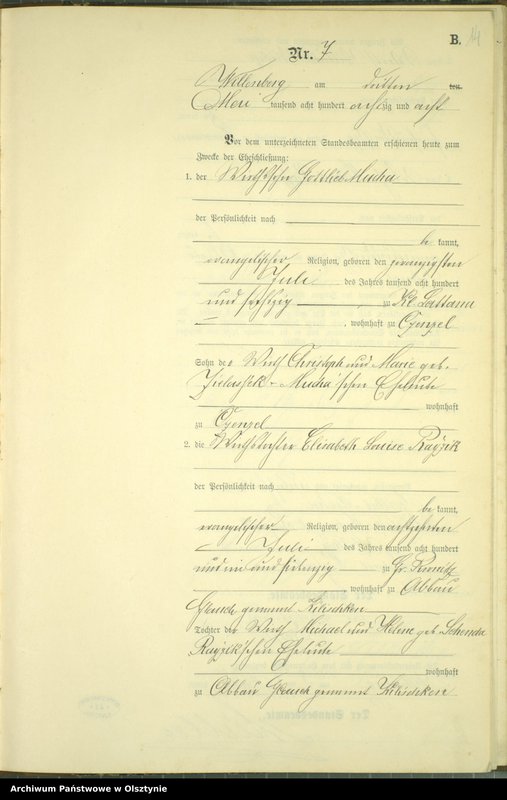 B. 14
Nr. 7
Willenberg am dritten ten
Mai tausend acht hundert achtzig und acht
Vor dem unterzeichneten Standesbeamten erschienen heute zum
Zwecke der Eheschließung:
1. der Wirthssohn Gottlieb Mucha
der Persönlichkeit nach
be kannt,
evangelischer Religion, geboren den zwanzigsten
Juli des Jahres tausend acht hundert
und sechszig zu Kl. Lattana
, wohnhaft zu Czenzel
Sohn des Wirth Christoph und Marie geb.
Mucha'schen Eheleute
wohnhaft
zu Czenzel
2. die Wirthstochter Elisabeth Louise Rayzik
der Persönlichkeit nach
be kannt,
evangelischer Religion, geboren den achtzehnten
Juli des Jahres tausend acht hundert
und sechszig zu Gr.
, wohnhaft zu Abbau
genannt
Tochter des Wirth Michael und Helene geb.
Rayzik'schen Eheleute
wohnhaft
zu Abbau genannt
Archiwum Państwowe w Olsztynie